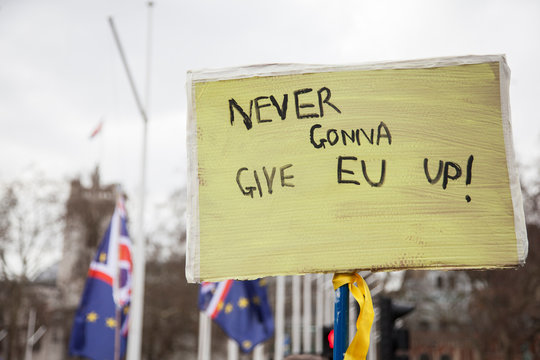 NEVER
GONNA
GIVE EU UP!